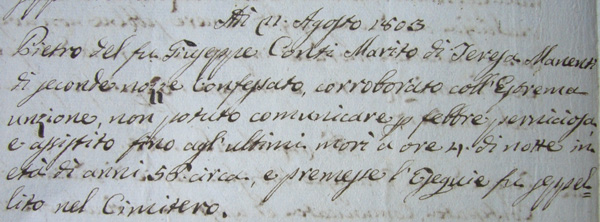 Adi 11. Agosto 1803
Pietro del fu Giuseppe Conti Marito di Teresa Manenti
di seconde nozze confessato, corroborato coll'Estrema
unzione, non potuto comunicare p febbre perniciosa
e assistito fino agl'ultimi morì a ore 4. di notte in
età di anni 56. circa, e premesse l'Esequie fu seppel=
lito nel Cimitero.